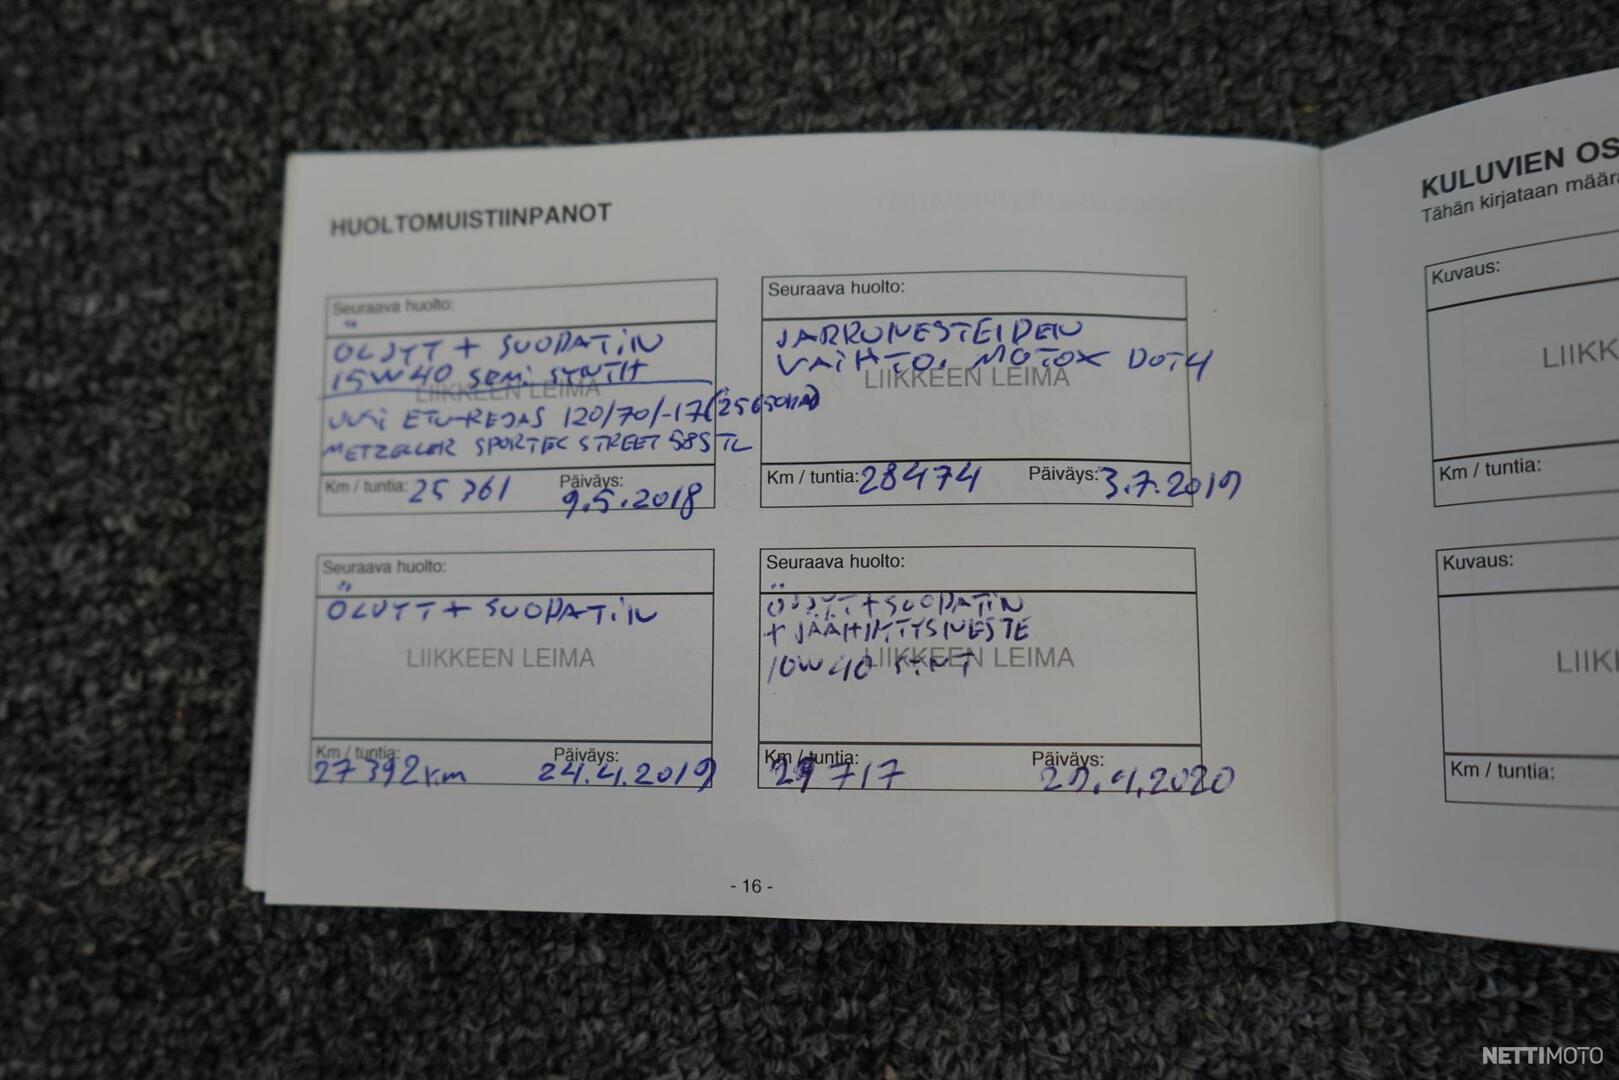 HUOLTOMUISTIINPANOT
Seuraava huolto:
ÖLJYT + SUODATIN
15W40 SEMI SYNTH
LIIKKEEN LEIMA
UUSI ETU-RENGAS 120/70/-17 (25650KM)
METZELER SPORTEC STREET 58S TL
Km / tuntia: 25361
Päiväys: 9.5.2018
Seuraava huolto:
JARRUNESTEIDEN
VAIHTO. MOTOX DOT4
LIIKKEEN LEIMA
Km / tuntia: 28474
Päiväys: 3.7.2019
Seuraava huolto:
ÖLJYT + SUODATIN
LIIKKEEN LEIMA
Km / tuntia: 27392km
Päiväys: 24.4.2019
Seuraava huolto:
ÖLJYT + SUODATIN
+ JÄÄHDYTYSNESTE
LIIKKEEN LEIMA
10W40 SYNT
Km / tuntia: 29717
Päiväys: 4.2020
- 16 -
KULUVIEN OS
Tähän kirjataan määrä
Kuvaus:
LIIKK
Km / tuntia:
Kuvaus:
LIIK
Km / tuntia:
NETTIMOTO